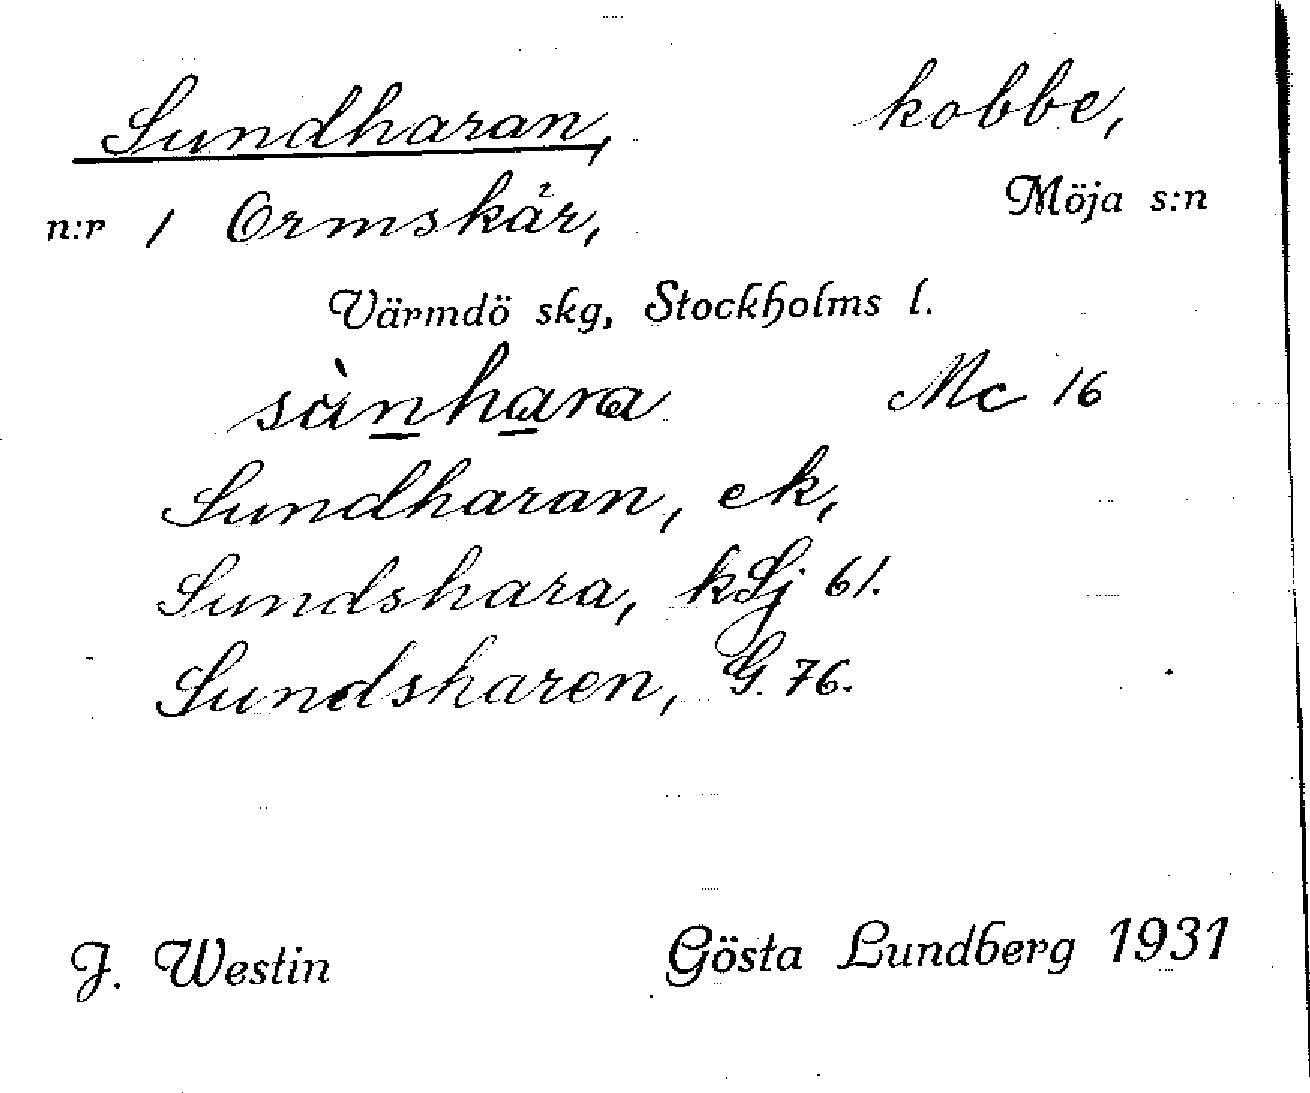 Sundharan, kobbe,
n:r 1 Ormskär, Möja s:n
Värmdö skg, Stockholms l.
sὰnhara Mc 16
Sundharan, ek,
Sundshara, kSj 61.
Sundsharen, G. 76.
J. Westin Gösta Lundberg 1931